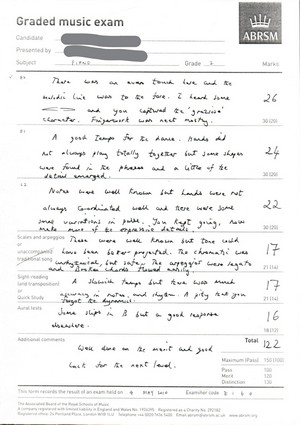 Graded music exam
Candidate
Presented by
Subject PIANO Grade
ABRSM
Marks
There was an even touch here and the
melodic line was to the fore. I heard some
and you captured the 'grazioso'
character. Fingerwork was neat mostly.
26
30 (20)
A good tempo for the dance. Hands did
not always play totally together but some shapes
were found in the phrases and a little of the
detail emerged.
24
30 (20)
Notes were well known but hands were not
always coordinated well and there were some
variations in pulse. You kept going, now
make more of the expressive details.
22
30 (20)
Scales and arpeggios
or
unaccompanied
traditional song
These were well known but tone could
have been better projected. The chromatic was
but safe. The arpeggios were legato
and Broken Chords flowed easily.
17
21 (14)
Sight reading
(and transposition)
or
Quick Study
A slowish tempo but there was much
accuracy in notes and rhythm. A pity that you
forgot the dynamics!
17
21 (14)
Aural tests
Some slips in B but a good response
elsewhere.
16
18 (12)
Additional comments
Well done on the merit and good
luck for the next level.
Total 122
Maximum (Pass) 150 (100)
Pass 100
Merit 120
Distinction 130
This form records the result of an exam held on MAY 2014 Examiner code
The Associated Board of the Royal Schools of Music